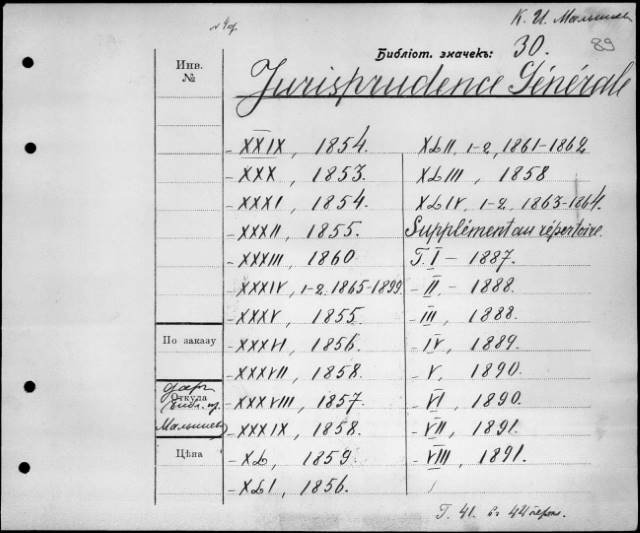 К. И. Малышев
Библіот. значекъ: 30. 89
Инв.
№
Jurisprudence Générale
- XXIX, 1854.
- XXX, 1853.
- XXXI, 1854.
- XXXII, 1855.
- XXXIII, 1860
- XXXIV, 1-2. 1865-1899
- XXXV, 1855.
- XXXVI, 1856.
- XXXVII, 1858.
- XXXVIII, 1857.
- XXXIX, 1858.
- XL, 1859.
- XLI, 1856.
XLII, 1-2, 1861-1862
XLIII, 1858
XLIV, 1-2. 1863-1864.
Supplément au répertoire.
T. I - 1887.
- II. - 1888.
- III, 1888.
- IV, 1889.
- V, 1890.
- VI, 1890.
- VII, 1891.
- VIII, 1891.
По заказу
даръ
Откуда
библ. пр.
Малышев
Цѣна
Т. 41. въ 44